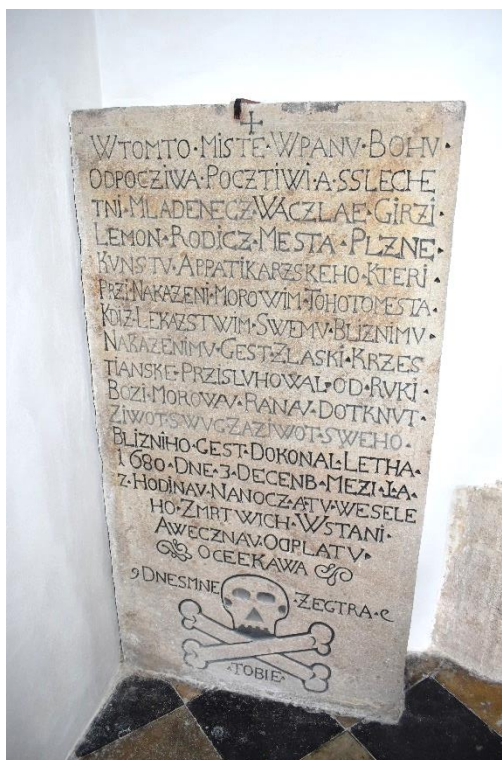 WTOMTO·MISTE·WPANV·BOHV
ODPOCZIWA·POCZTIWI·A·SSLECHE
TNI·MLADENECZ·WACZLAE·GIRZI·
LEMON·RODICZ·MESTA·PLZNE·
KVNSTV·APPATIKARZSKEHO·KTERI
PRZI·NAKAZENI·MOROWIM·TOHOTOMESTA·
KDIZ·LEKAZSTWIM·SWEMV·BLIZNIMV·
NAKAZENIMV·GEST·ZLASKI·KRZES
TIANSKE·PRZISLVHOWAL·OD·RVKI·
BOZI·MOROWAV·RANAV·DOTKNVT·
ZIWOT·SWVG·ZAZIWOT·SWEHO·
BLIZNIHO·GEST·DOKONAL·LETHA·
1680·DNE·3·DECENB·MEZI·1·A·
2·HODINAV·NANOCZ·ATV·WESELE
HO·ZMRTWICH·WSTANI·
AWECZNAV·ODPLATV·
OCEEKAWA
DNESMNE·ZEGTRA·
·TOBIE·